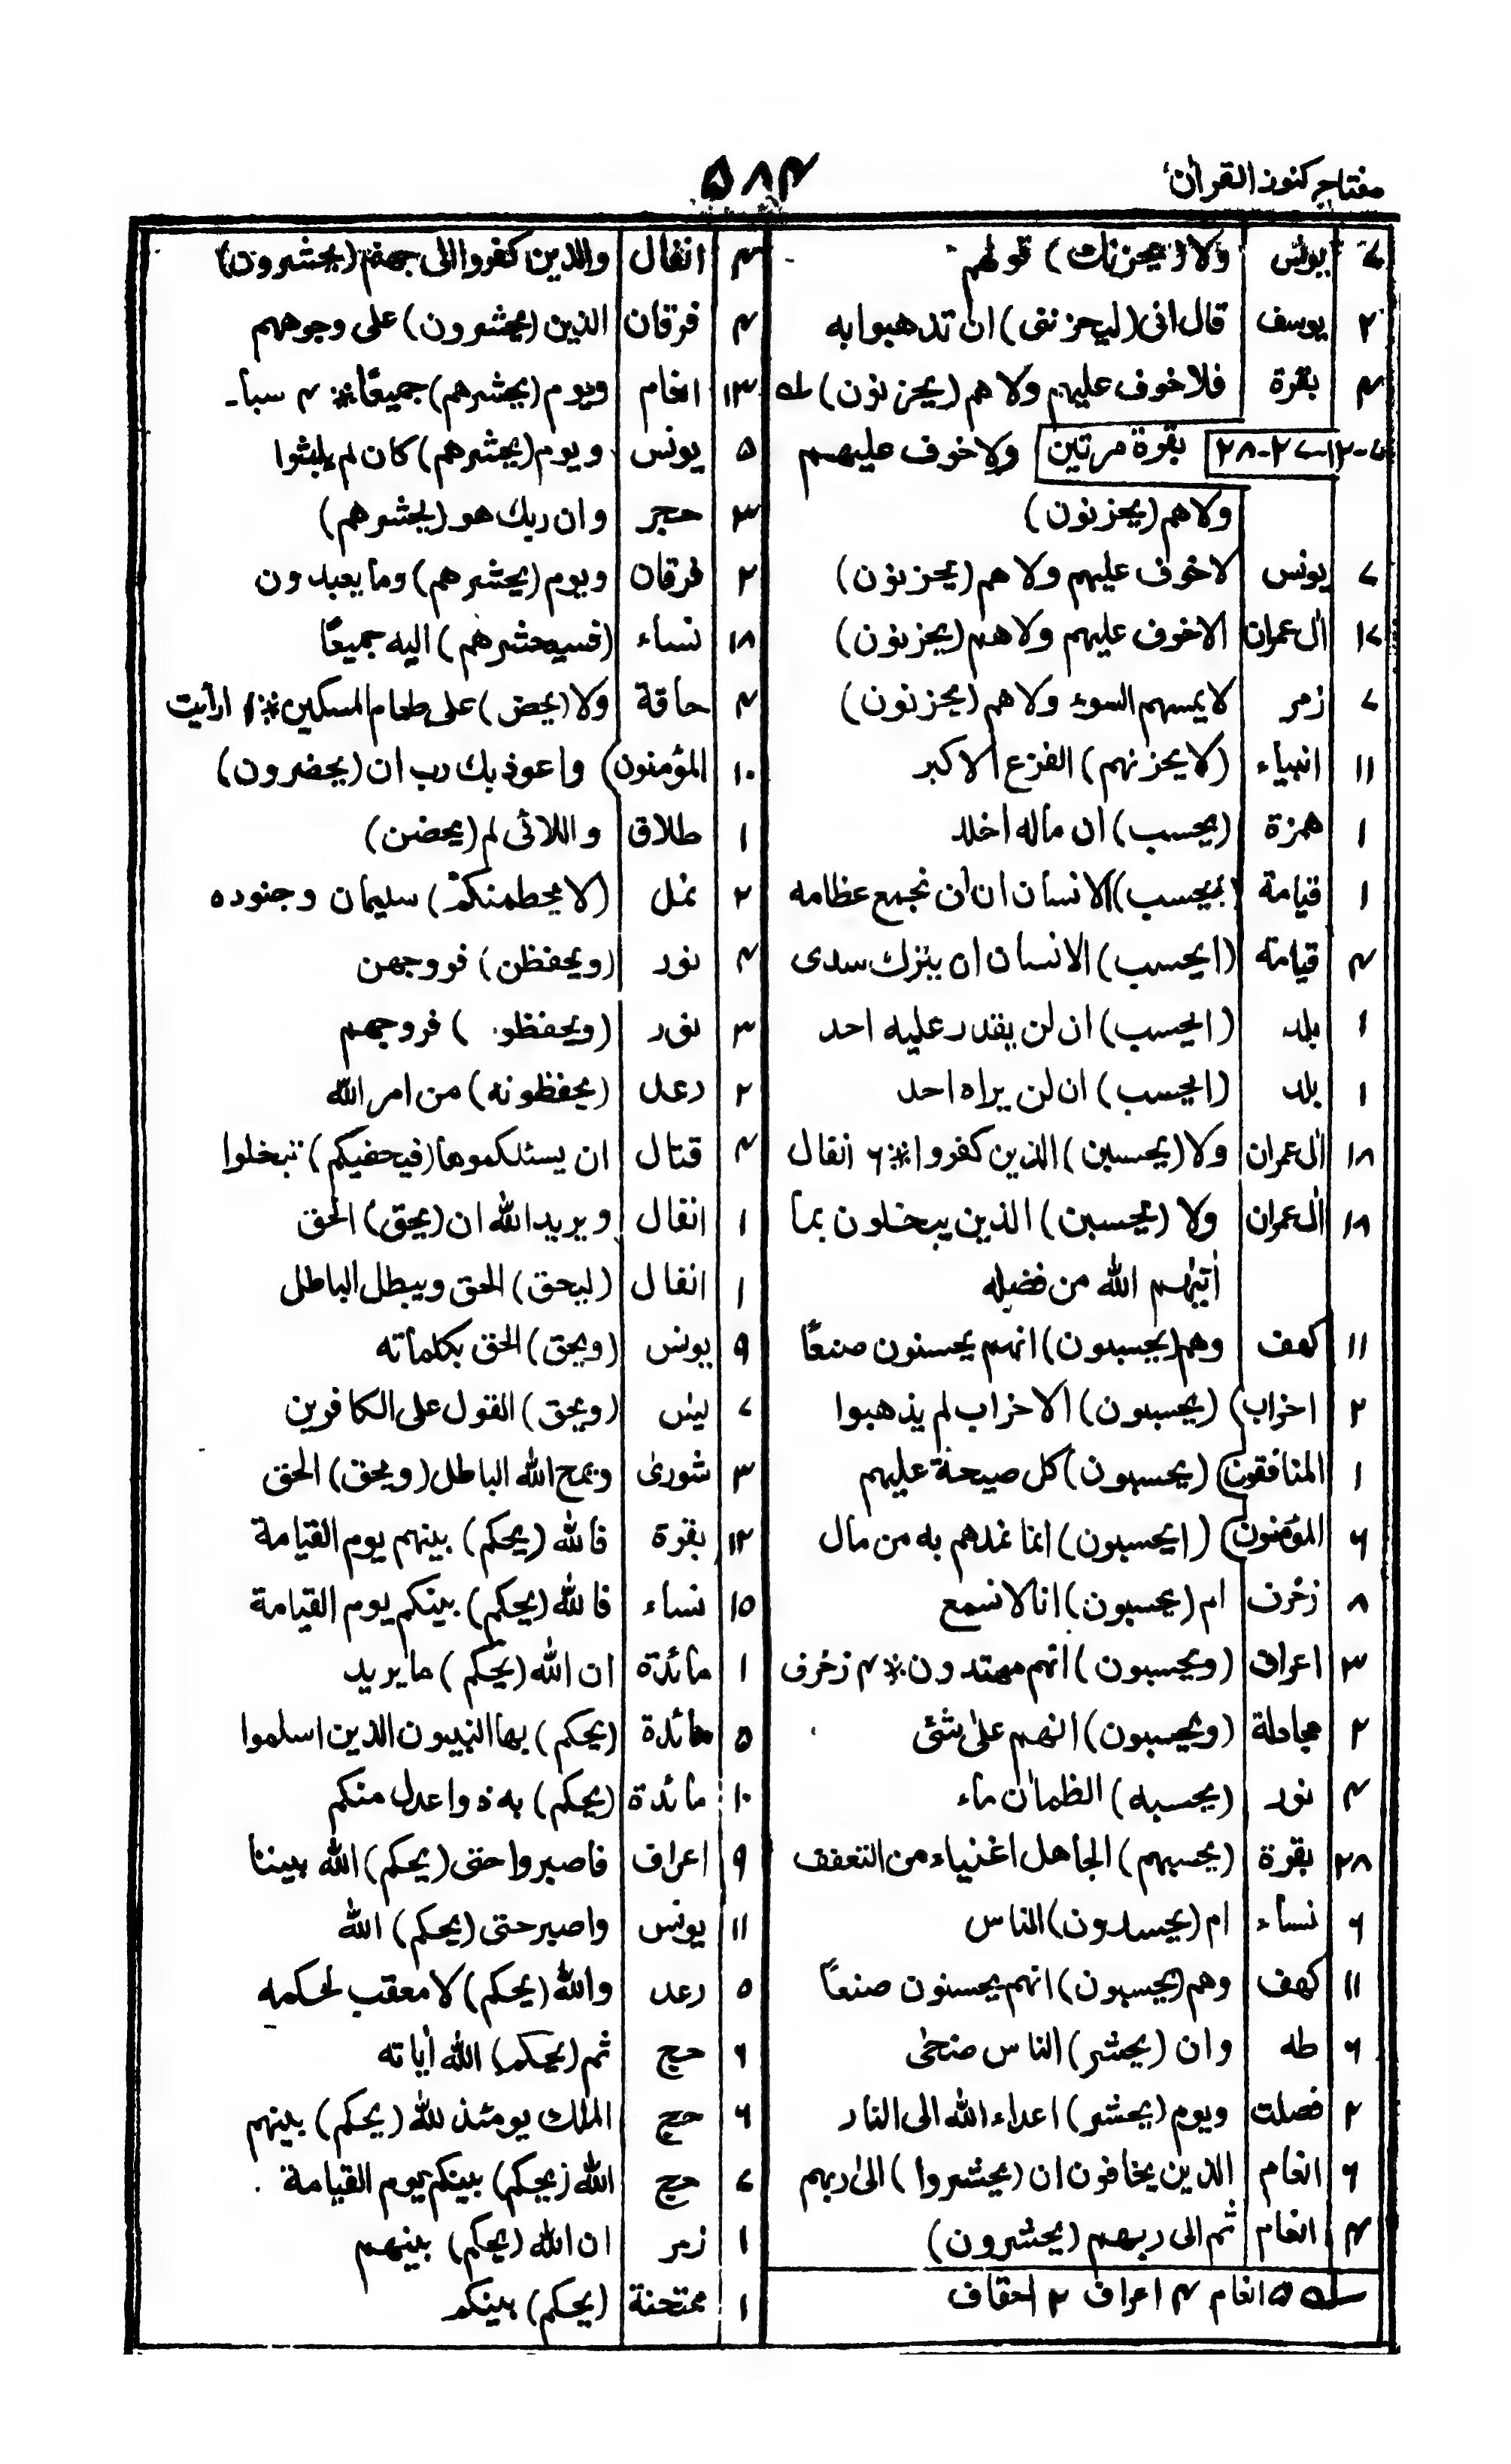 مفتاح كنوز القرآن
۵۸۴
۷ يونس ولا (يحزنك) قولهم
۲ يوسف قال انى (ليحزننى) ان تذهبوا به
۴ بقرة فلا خوف عليهم ولا هم (يحزنون) ـله
۷-۱۲-۲۷-۲۸ بقرة مرتين ولا خوف عليهم
ولا هم (يحزنون)
۷ يونس لا خوف عليهم ولا هم (يحزنون)
۱۷ اٰل عمران الا خوف عليهم ولا هم (يحزنون)
۷ زمر لا يمسهم السوء ولا هم (يحزنون)
۱۱ انبياء (لا يحزنهم) الفزع الاكبر
۱ همزة (يحسب) ان ماله اخلد
۱ قيامة (ايحسب) الانسان ان لن نجمع عظامه
۴ قيامة (ايحسب) الانسان ان يترك سدى
۱ بلد (ايحسب) ان لن يقدر عليه احد
۱ بلد (ايحسب) ان لن يراه احد
۱۸ اٰل عمران ولا (يحسبن) الذين كفروا ※ ۶ انفال
۱۸ اٰل عمران ولا (يحسبن) الذين يبخلون بما
اٰتيٰهم الله من فضله
۱۱ كهف وهم (يحسبون) انهم يحسنون صنعًا
۲ احزاب (يحسبون) الاحزاب لم يذهبوا
۱ المنافقون (يحسبون) كل صيحة عليهم
۶ المؤمنون (ايحسبون) انما نمدهم به من مال
۸ زخرف ام (يحسبون) انا لا نسمع
۳ اعراف (ويحسبون) انهم مهتدون ※ ۴ زخرف
۲ مجادلة (ويحسبون) انهم على شئ
۴ نور (يحسبه) الظمآن ماء
۲۸ بقرة (يحسبهم) الجاهل اغنياء من التعفف
۶ نساء ام (يحسدون) الناس
۱۱ كهف وهم (يحسبون) انهم يحسنون صنعًا
۶ طه وان (يحشر) الناس ضحى
۲ فصلت ويوم (يحشر) اعداء الله الى النار
۶ انعام الذين يخافون ان (يحشروا) الى ربهم
۴ انعام ثم الى ربهم (يحشرون)
ـله ۵ انعام ۴ اعراف ۲ احقاف
۴ انفال والذين كفروا الى جهنم (يحشرون)
۴ فرقان الذين (يحشرون) على وجوههم
۱۳ انعام ويوم (يحشرهم) جميعًا ※ ۴ سبا-
۵ يونس ويوم (يحشرهم) كان لم يلبثوا
۳ حجر وان ربك هو (يحشرهم)
۲ فرقان ويوم (يحشرهم) وما يعبدون
۱۸ نساء (فسيحشرهم) اليه جميعًا
۴ حاقة ولا (يحض) على طعام المسكين ※ ۱ ارأيت
۱۰ المؤمنون واعوذ بك رب ان (يحضرون)
۱ طلاق واللائى لم (يحضن)
۲ نمل (لا يحطمنكم) سليمان وجنوده
۴ نور (ويحفظن) فروجهن
۳ نور (ويحفظو ) فروجهم
۲ رعد (يحفظونه) من امر الله
۴ قتال ان يسئلكموها (فيحفيكم) تبخلوا
۱ انفال ويريد الله ان (يحق) الحق
۱ انفال (ليحق) الحق ويبطل الباطل
۹ يونس (ويحق) الحق بكلماته
۷ يٰس (ويحق) القول على الكافرين
۳ شورىٰ ويمح الله الباطل (ويحق) الحق
۱۲ بقرة فالله (يحكم) بينهم يوم القيامة
۱۵ نساء فالله (يحكم) بينكم يوم القيامة
۱ مائدة ان الله (يحكم) ما يريد
۵ مائدة (يحكم) بها النبيون الذين اسلموا
۱۰ مائدة (يحكم) به ذوا عدل منكم
۹ اعراف فاصبروا حتى (يحكم) الله بيننا
۱۱ يونس واصبر حتى (يحكم) الله
۵ رعد والله (يحكم) لا معقب لحكمه
۶ حج ثم (يحكم) الله أياته
۶ حج الملك يومئذ لله (يحكم) بينهم
۷ حج الله (يحكم) بينكم يوم القيامة
۱ زمر ان الله (يحكم) بينهم
۱ ممتحنة (يحكم) بينكم